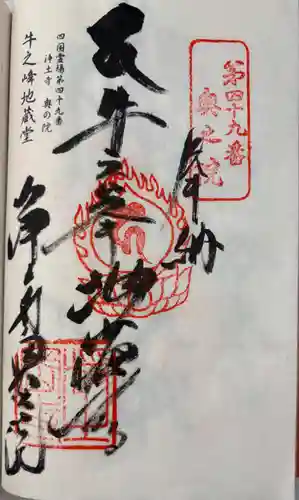 第四十九番
奥之院
奉納
牛之峰地蔵
四国霊場第四十九番
浄土寺 奥の院
牛之峰地蔵堂
浄土寺奥之院